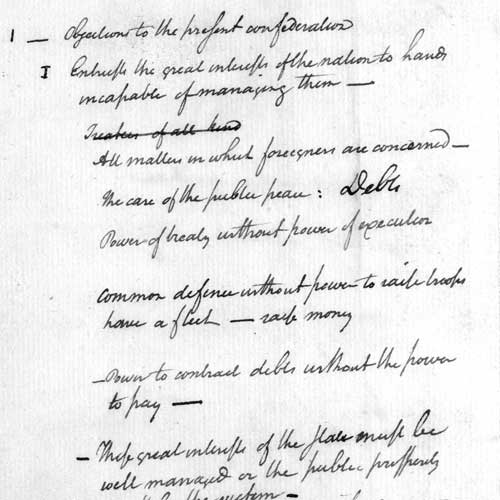 1 — Objections to the present confederation
I Entrusts the great interests of the nation to hands
incapable of managing them —
Treaties of all kind
All matters in which foreigners are concerned —
The care of the public peace : Debts
Power of treaty without power of execution
Common defence without power to raise troops
have a fleet — raise money
— Power to contract debts without the power
to pay —
— These great interests of the state must be
well managed or the public prosperity
must be the victim —